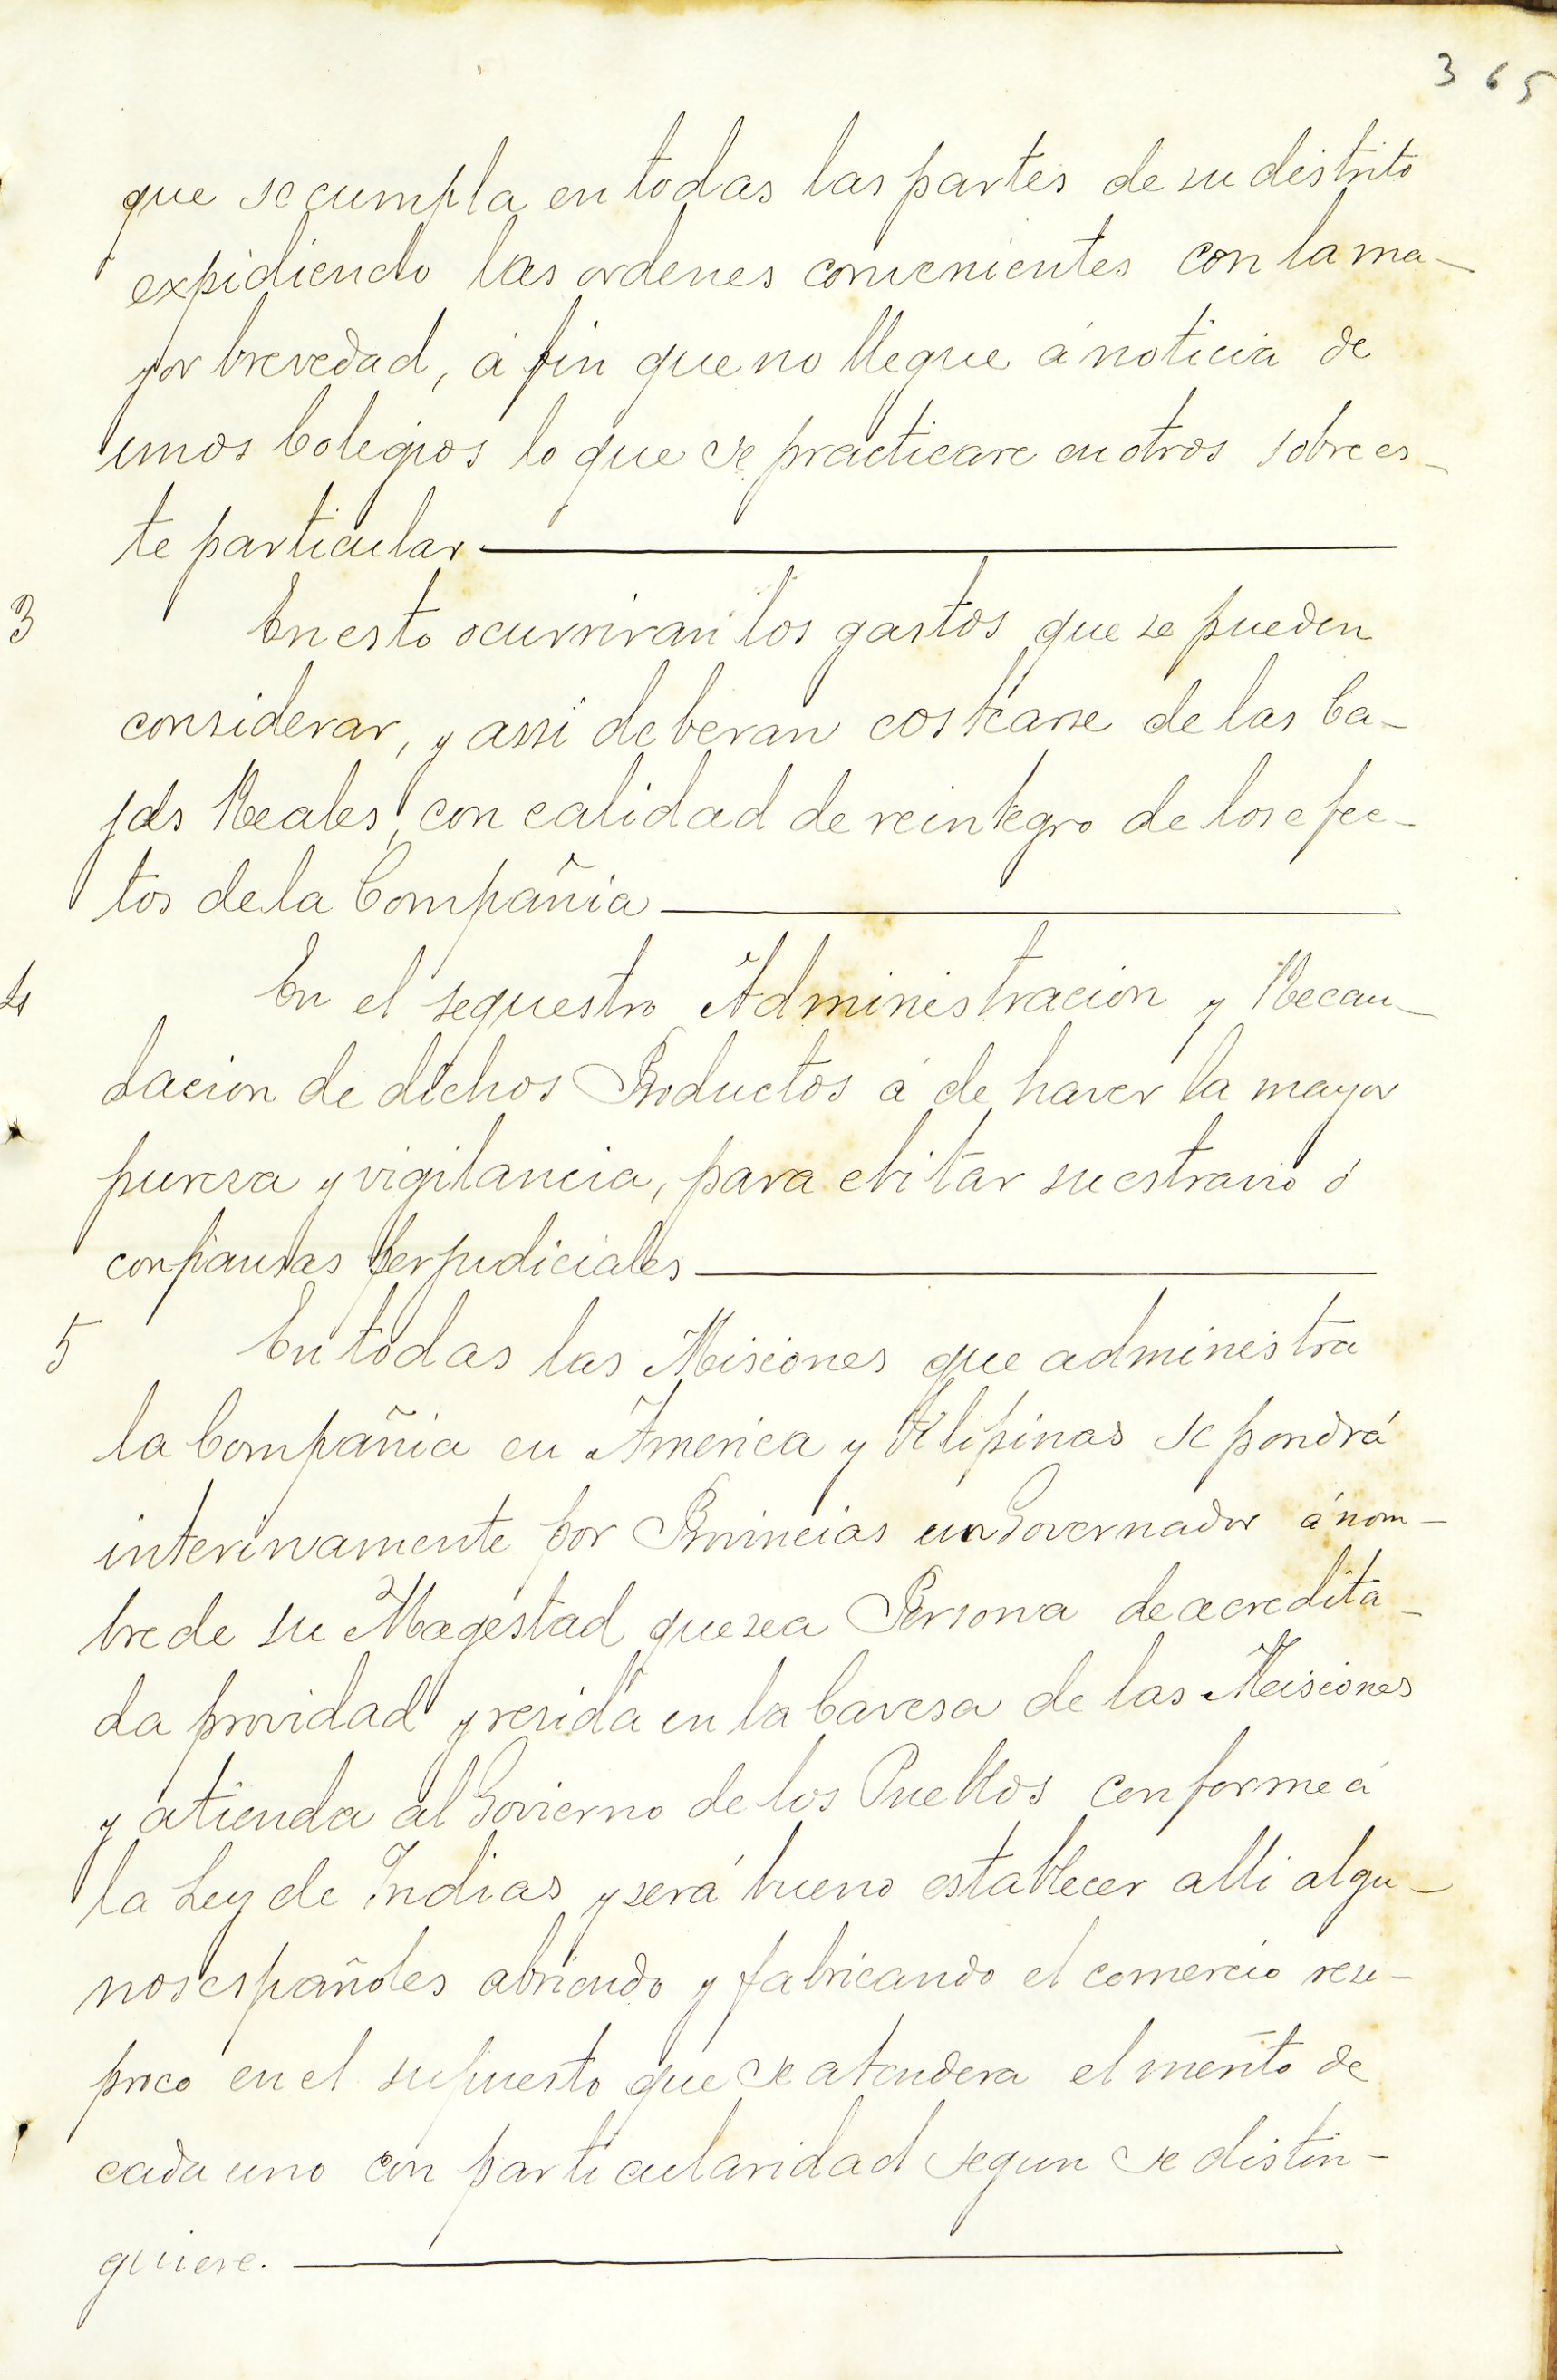 365
que se cumpla en todas las partes de su distrito
expidiendo las ordenes convenientes con la ma-
yor brevedad, á fin que no llegue á noticia de
unos Colegios lo que se practicare en otros sobre es-
te particular
3 En esto ocurriran los gastos que se pueden
considerar, y assi deberan costearse de las Ca-
jas Reales, con calidad de reintegro de los efec-
tos de la Compañia
4 En el sequestro Administracion y Recau-
dacion de dichos Productos á de haver la mayor
puresa y vigilancia, para evitar su estravio ó
confiansas perjudiciales
5 En todas las Misiones que administra
la Compañia en America y Filipinas se pondrá
interinamente por Provincias un Governador á nom-
bre de su Magestad que sea Persona de acredita-
da providad y resida en la Cavesa de las Misiones
y atienda al Govierno de los Pueblos conforme á
la Ley de Indias y será bueno establecer alli algu-
nos españoles abriendo y fabricando el comercio resi-
proco en el supuesto que se atendera el merito de
cada uno con particularidad segun se distin-
guiere.